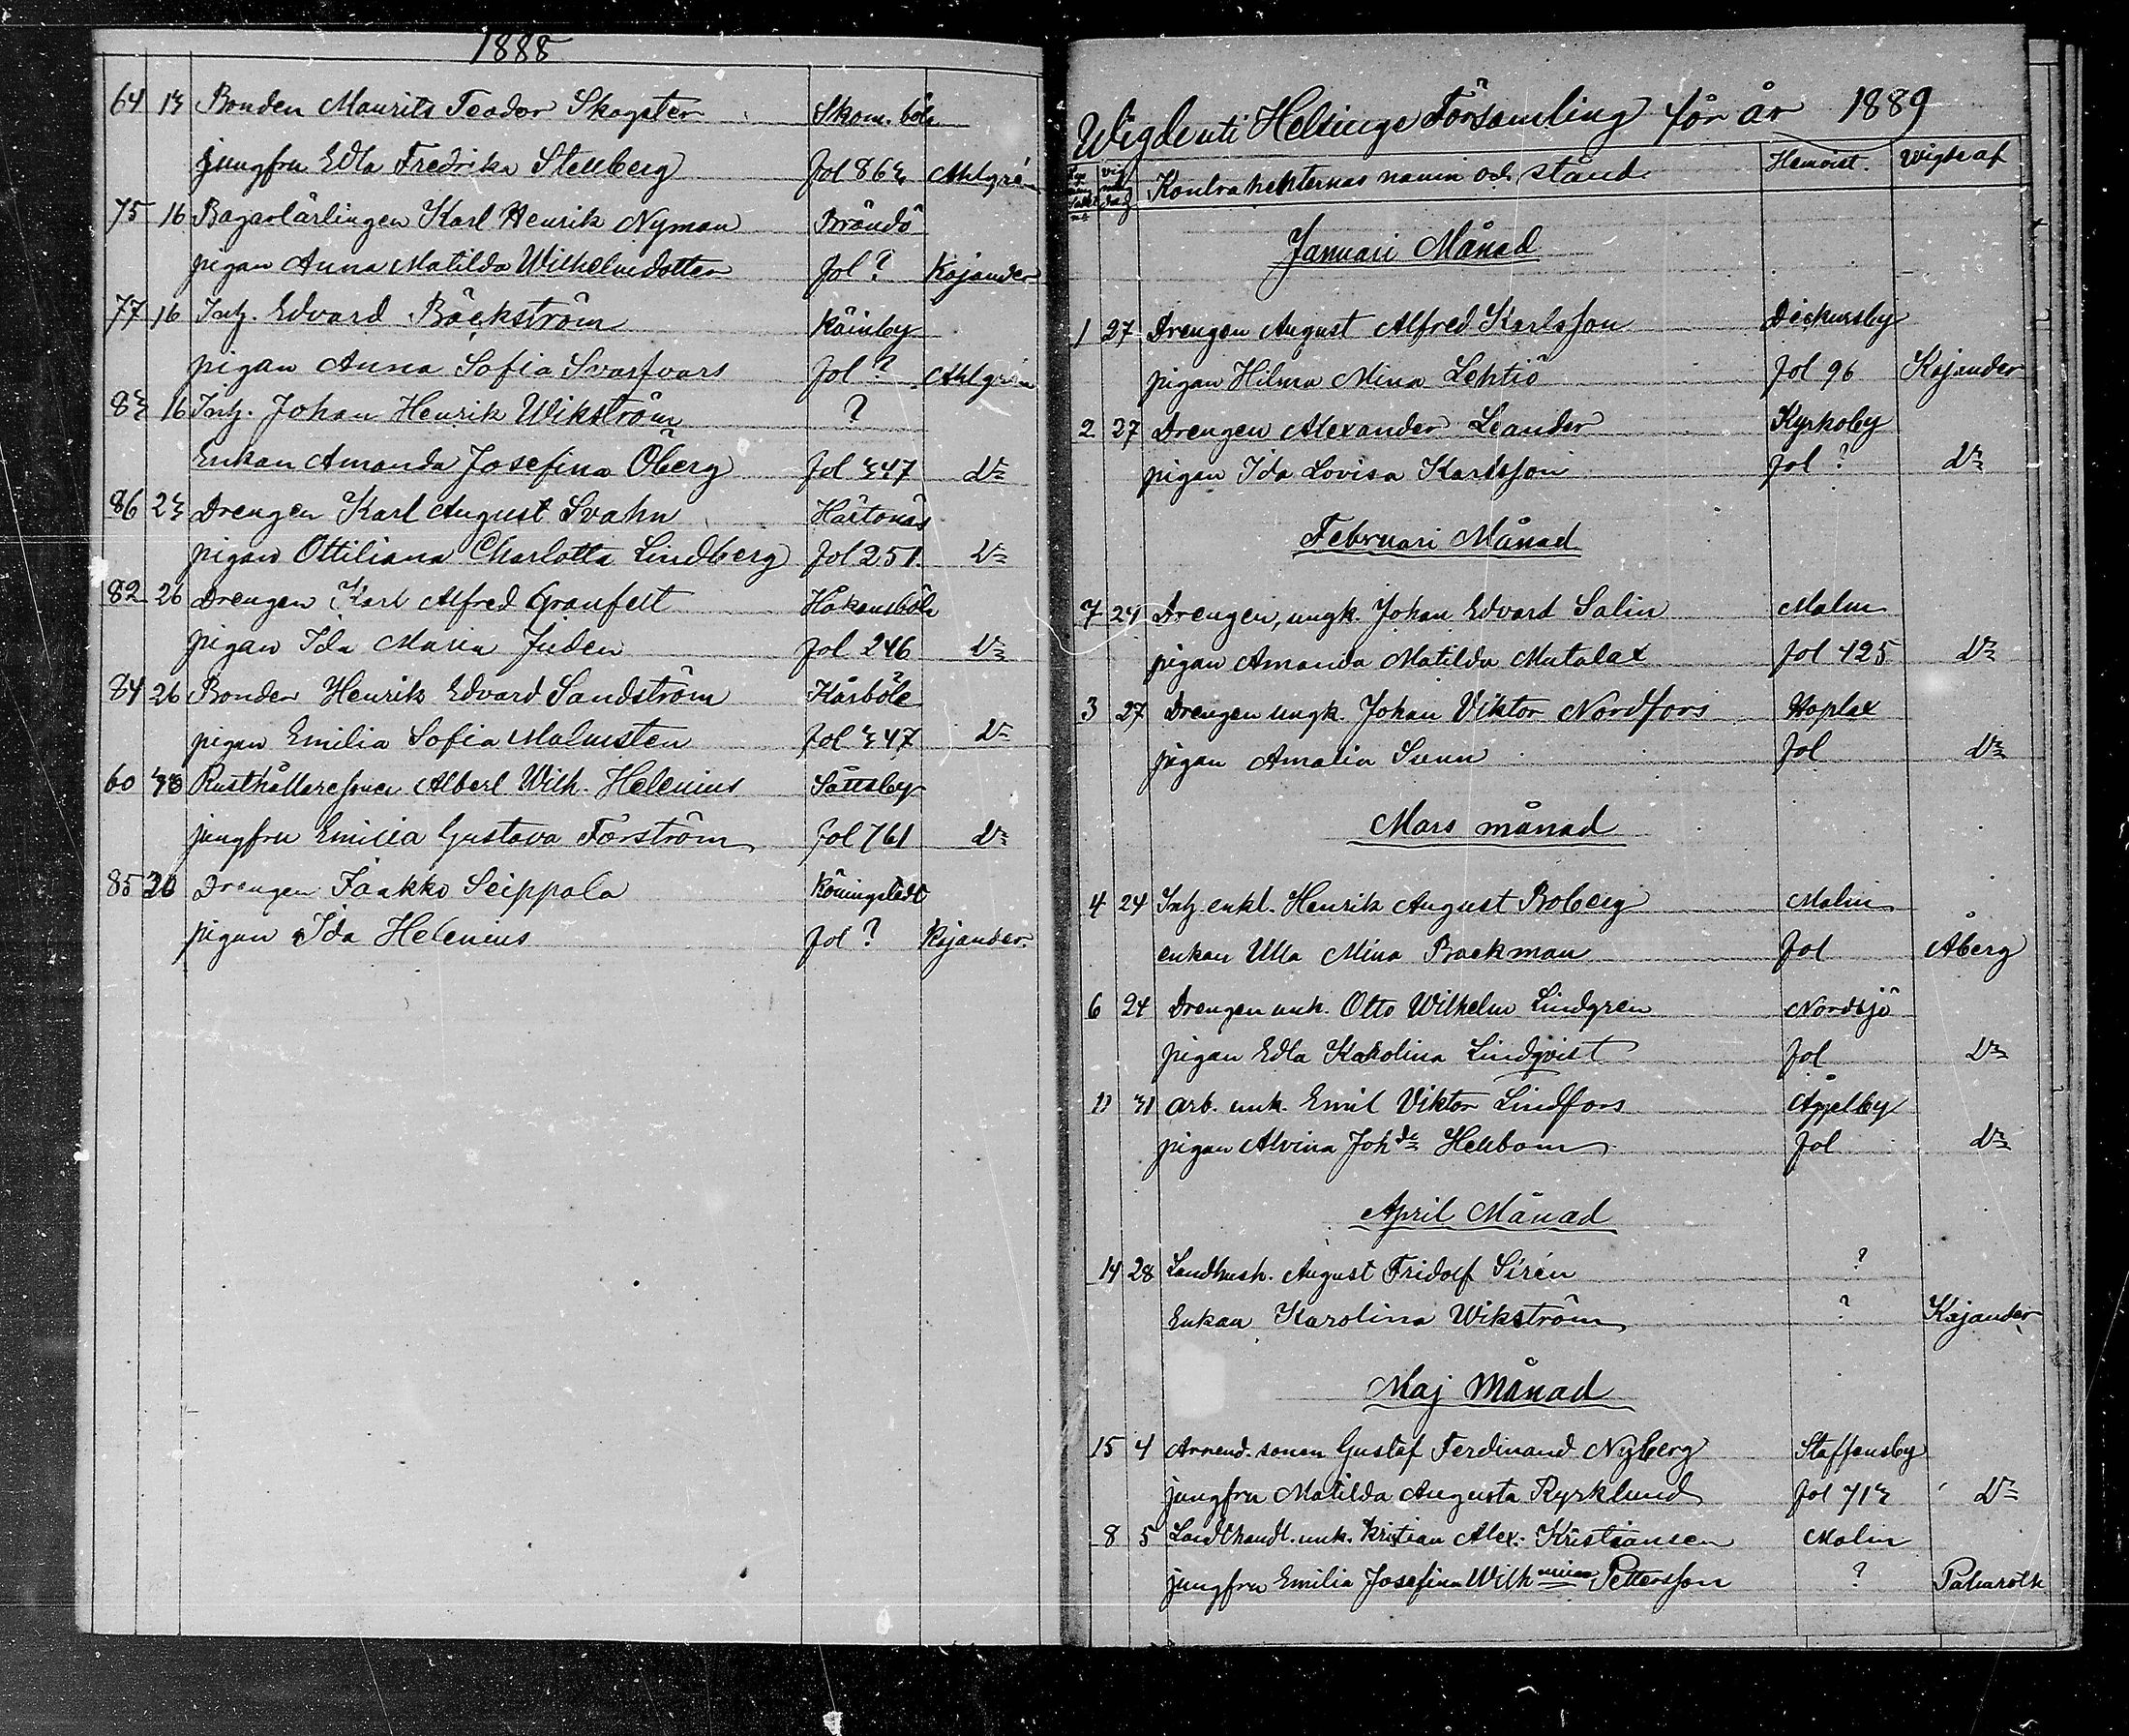 1888
64 13 Bonden Maurits Teodor Skogster Skom. böle
jungfru Edla Fredrika Stellberg fol 863 Ahlgrén
75 16 Bagarlärlingen Karl Henrik Nyman Brändö
pigan Anna Matilda Wilhelmsdotter fol ? Kajander
77 16 Inh. Edvard Bäckström Käinby
pigan Anna Sofia Svarfvars fol ? Ahlgrén
83 16 Inh. Johan Henrik Wikström ?
Enkan Amanda Josefina Öberg fol 347 Do
86 23 Drengen Karl August Svahn Härtonäs
pigan Ottiliana Charlotta Lindberg fol 251. Do
82 26 Drengen Karl Alfred Granfelt Håkansböle
pigan Ida Maria Juden fol 246 Do
84 26 Bonden Henrik Edvard Sandström Kårböle
pigan Emilia Sofia Malmsten fol 347 Do
60 Rusthållaresonen Albert Wilh. Helenius Sottsby
jungfru Emilia Gustava Forström fol 761 Do
85 30 Drengen Jaakko Seippola Köningstedt
pigan Ida Helenius fol ? Kajander
Wigde uti Helsinge Församling för år 1889
Kontrahenternas namn och stånd Hemvist. Wigde af
Januari Månad
1 27 Drengen August Alfred Karlsson Dickursby
pigan Hilma Mina Lehtiö fol 96 Kajander
2 27 Drengen Alexander Leander Kyrkoby
pigan Ida Lovisa Karlsson fol ? Do
Februari Månad
7 24 Drengen, ungk. Johan Edvard Salin Malm
pigan Amanda Matilda Mutalax fol 425 Do
3 27 Drengen ungk. Johan Viktor Nordfors Hoplax
pigan Amalia Sunn fol Do
Mars månad
4 24 Inh. enkl. Henrik August Broberg Malm
enkan Ulla Mina Backman fol Åberg
6 24 Drengen unk. Otto Wilhelm Lindgren Nordsjö
pigan Edla Karolina Lindqvist fol Do
11 31 Arb. unk. Emil Viktor Lindfors Åggelby
pigan Alvina Johda Hellbom fol Do
April Månad
14 28 Landbush. August Fridolf Sirén ?
Enkan Karolina Wikström ? Kajander
Maj Månad
15 4 Arrend. sonen Gustaf Ferdinand Nyberg Staffansby
jungfru Matilda Augusta Kyrklund fol 713 Do
8 5 Landthandl. unk. Kristian Alex. Kristiansen Malm
jungfru Emilia Josefina Wilhmina Pettersson ?